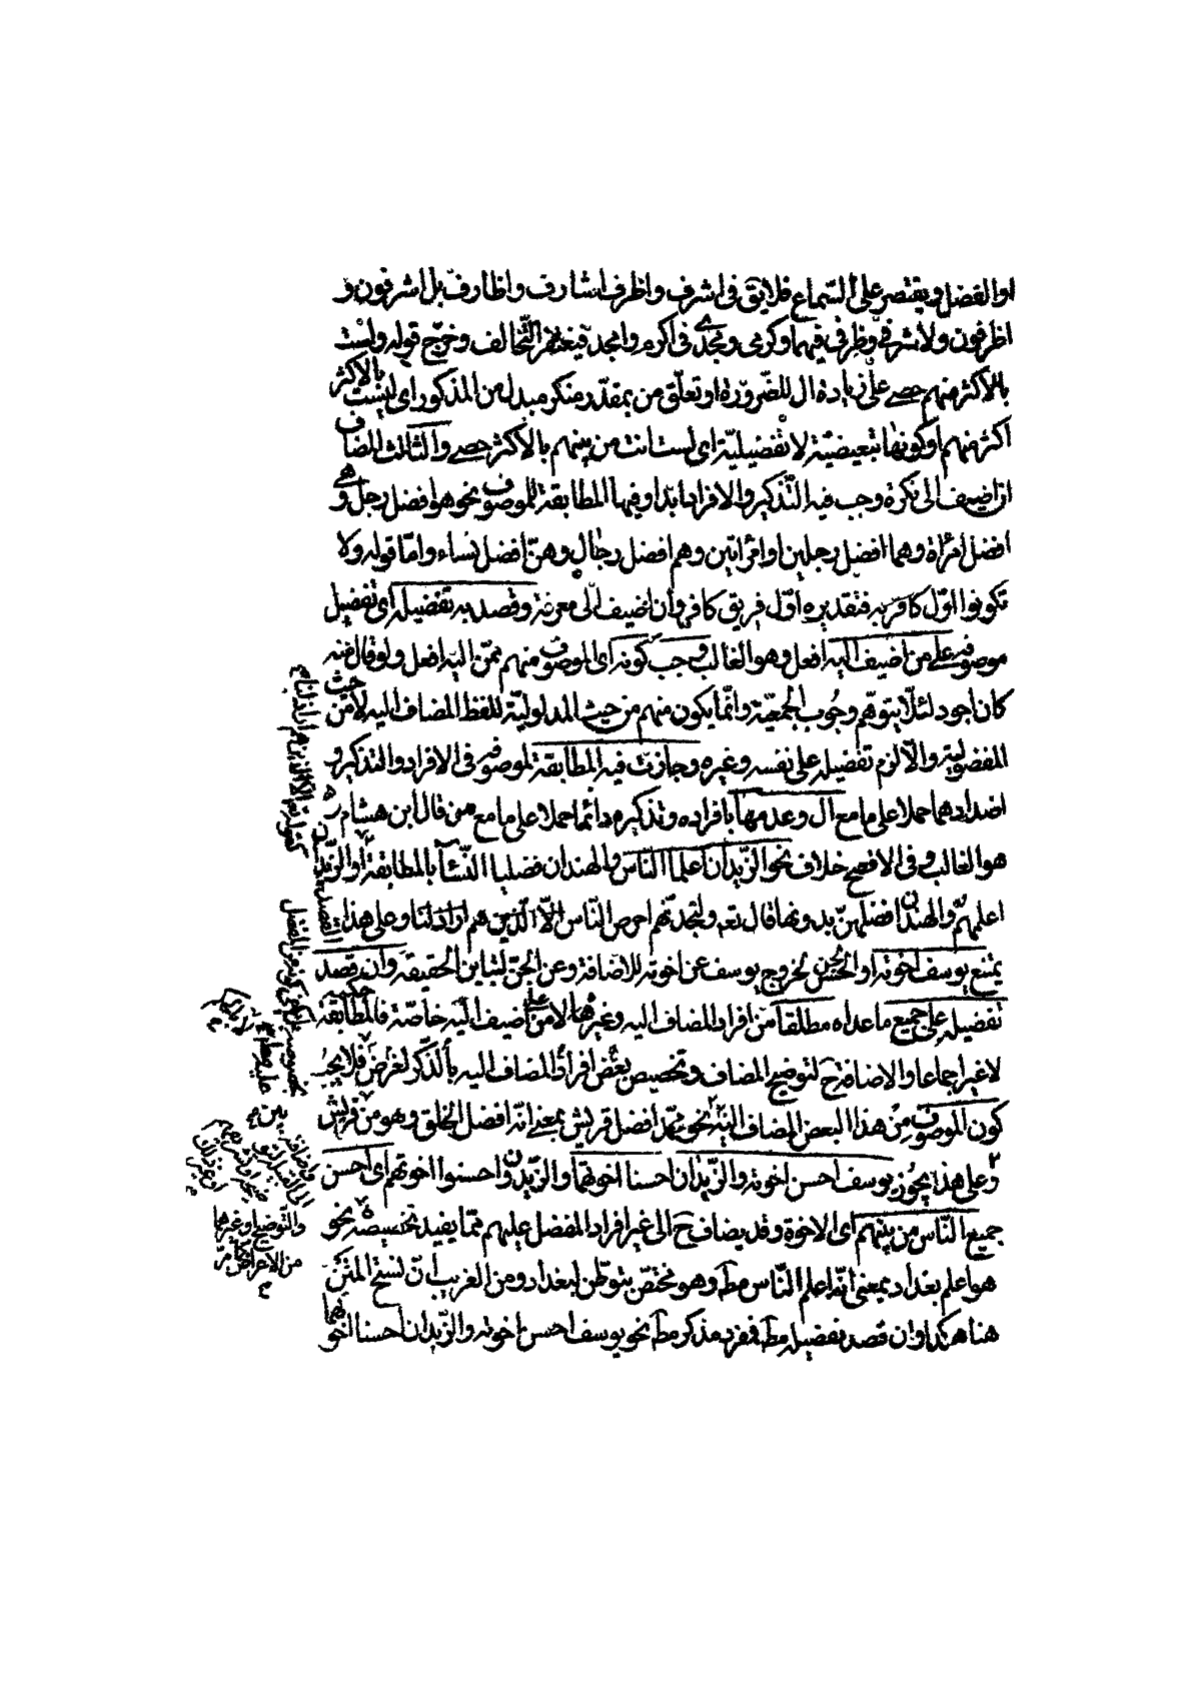 او الفضل ويقتصر على السماع فلا يق في اشرف واظرف اشارف واظارف بل اشرفون و
اظرفون ولا شرفى وظرفى فيهما وكرمى ومجدى في اكرم وامجد فيغتفر التخالف وخرج قوله ولست
بالاكثر منهم حصى على زيادة ال للضرورة او تعلق من بمقدر منكر مبدل من المذكور اى لست بالاكثر
اكثر منهم او كونها تبعيضية لا تفضيلية اى لست انت من بينهم بالاكثر حصى والثالث المضاف
ان اضيف الى نكرة وجب فيه التذكير والافراد ابدا وفيها المطابقة للموصوف نحو هو افضل رجل وهى
افضل امراة وهما افضل رجلين او امراتين وهم افضل رجال وهن افضل نساء واما قوله ولا
تكونوا اول كافر به فتقديره اول فريق كافر وان اضيف الى معرفة وقصد به تفضيله اى تفضيل
موصوفه على من اضيف اليه افعل وهو الغالب وجب كونه اى الموصوف منهم ممن اليه افعل ولو قال منه
كان اجود لئلا يتوهم وجوب الجمعية وانما يكون منهم من حيث المدلولية للفظ المضاف اليه لا من حيث
المفضولية والا لزم تفضيله على نفسه وغيره وجازت فيه المطابقة لموصوفه في الافراد والتذكير و
اضدادهما حملا على ما مع ال وعدمها بافراده وتذكيره دائما حملا على ما مع من قال ابن هشام ره
هو الغالب وفى الافصح خلاف نحو الزيدان اعلما الناس والهندان فضليا النساء بالمطابقة او الزيدان
اعلمهم والهندان افضلهن بدونها قال تعه ولتجدنهم احرص الناس الا الذين هم اراذلنا وعلى هذا القصد
يمتنع يوسف احسن اخوته او الجن لخروج يوسف عن اخوته للاضافة وعن الجن لتباين الحقيقة وان قصد
تفضيله على جميع ما عداه مطلقا من افراد المضاف اليه وغيرها لا من على اضيف اليه خاصة فالمطابقة حكمه
لا غير اجماعا والاضافة ح لتوضيح المضاف وتخصيص بعض افراد المضاف اليه بالذكر لغرض فلا يجب
كون الموصوف من هذا البعض المضاف اليه نحو محمد افضل قريش بمعنى انه افضل الخلق وهو من قريش
وعلى هذا يجوز يوسف احسن اخوته والزيدان احسنا اخوتهما والزيدون احسنوا اخوتهم اى احسن
جميع الناس من بينهم اى الاخوة وقد يضاف ح الى غير افراد المفضل عليهم مما يفيد تخصيصه نحو
هو اعلم بغداد بمعنى انه اعلم الناس مط وهو مختص بتوطن بغداد ومن الغريب ان نسخ المتن
هنا هكذا وان قصد تفضيله مط فمفرد مذكر مط نحو يوسف احسن اخوته والزيدان احسنا اخوتهما
والتوضيح او غيرها
من الاغراض